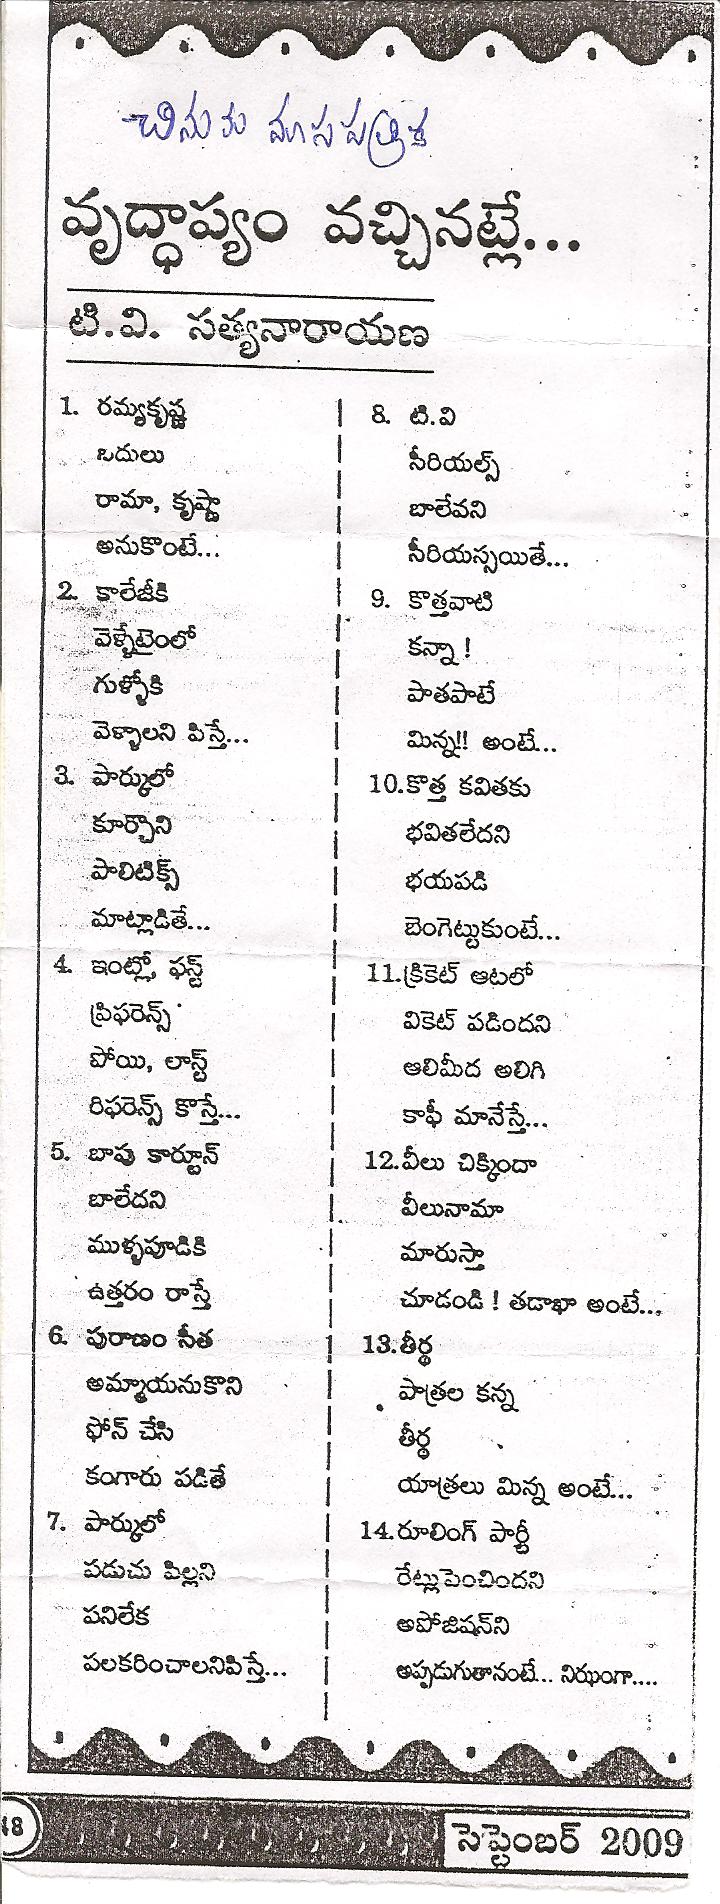 చినుకు మాసపత్రిక
వృద్ధాప్యం వచ్చినట్లే...
టి.వి. సత్యనారాయణ
1. రమ్యకృష్ణ
ఒదులు
రామా, కృష్ణా
అనుకొంటే...
2. కాలేజీకి
వెళ్ళేటైంలో
గుళ్ళోకి
వెళ్ళాలని పిస్తే...
3. పార్కులో
కూర్చొని
పాలిటిక్స్
మాట్లాడితే...
4. ఇంట్లో, ఫస్ట్
ప్రిఫరెన్స్
పోయి, లాస్ట్
రిఫరెన్స్ కొస్తే...
5. బాపు కార్టూన్
బాలేదని
ముళ్ళపూడికి
ఉత్తరం రాస్తే
6. పురాణం సీత
అమ్మాయనుకొని
ఫోన్ చేసి
కంగారు పడితే
7. పార్కులో
పడుచు పిల్లని
పనిలేక
పలకరించాలనిపిస్తే...
8. టి.వి
సీరియల్స్
బాలేవని
సీరియస్సయితే...
9. కొత్తవాటి
కన్నా!
పాతపాటే
మిన్న!! అంటే...
10.కొత్త కవితకు
భవితలేదని
భయపడి
బెంగెట్టుకుంటే...
11.క్రికెట్ ఆటలో
వికెట్ పడిందని
ఆలిమీద అలిగి
కాఫీ మానేస్తే...
12.వీలు చిక్కిందా
వీలునామా
మారుస్తా
చూడండి! తడాఖా అంటే...
13.తీర్థ
పాత్రల కన్న
తీర్థ
యాత్రలు మిన్న అంటే...
14.రూలింగ్ పార్టీ
రేట్లుపెంచిందని
అపోజిషన్‌ని
అప్పడుగుతానంటే... నిఝంగా....
48
సెప్టెంబర్ 2009